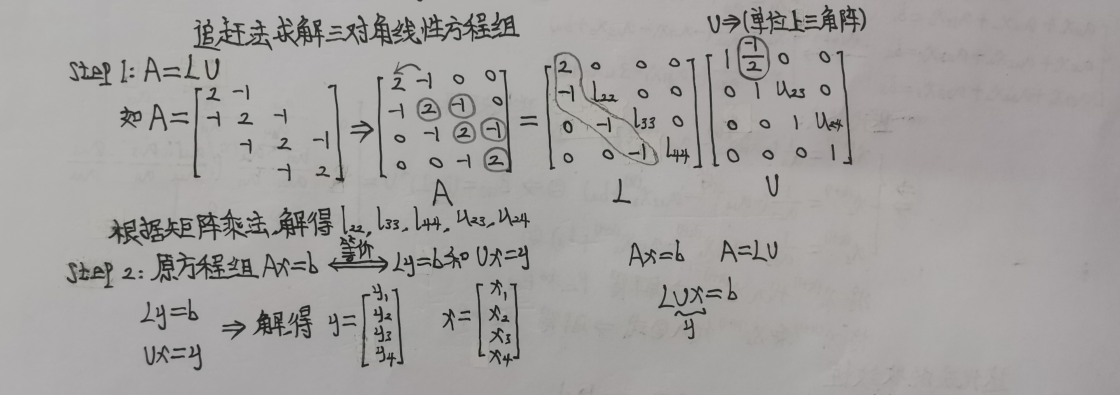 追赶法求解三对角线性方程组
U⇒(单位上三角阵)
Step 1: A=LU
如 A=[2 -1; -1 2 -1; -1 2 -1; -1 2] ⇒ [2 -1 0 0; -1 2 -1 0; 0 -1 2 -1; 0 0 -1 2] = [2 0 0 0; -1 l22 0 0; 0 -1 l33 0; 0 0 -1 l44] [1 -1/2 0 0; 0 1 u23 0; 0 0 1 u24; 0 0 0 1]
A L U
根据矩阵乘法,解得 l22, l33, l44, u23, u24
Step 2: 原方程组 Ax=b ⟺等价 Ly=b 和 Ux=y
Ax=b A=LU
LUx=b
y
Ly=b
Ux=y
⇒ 解得 y=[y1; y2; y3; y4] x=[x1; x2; x3; x4]